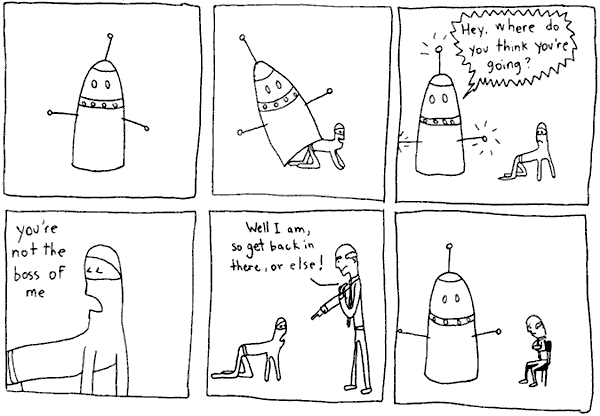 Hey, where do
you think you're
going?
you're
not the
boss of
me
Well I am,
so get back in
there, or else!